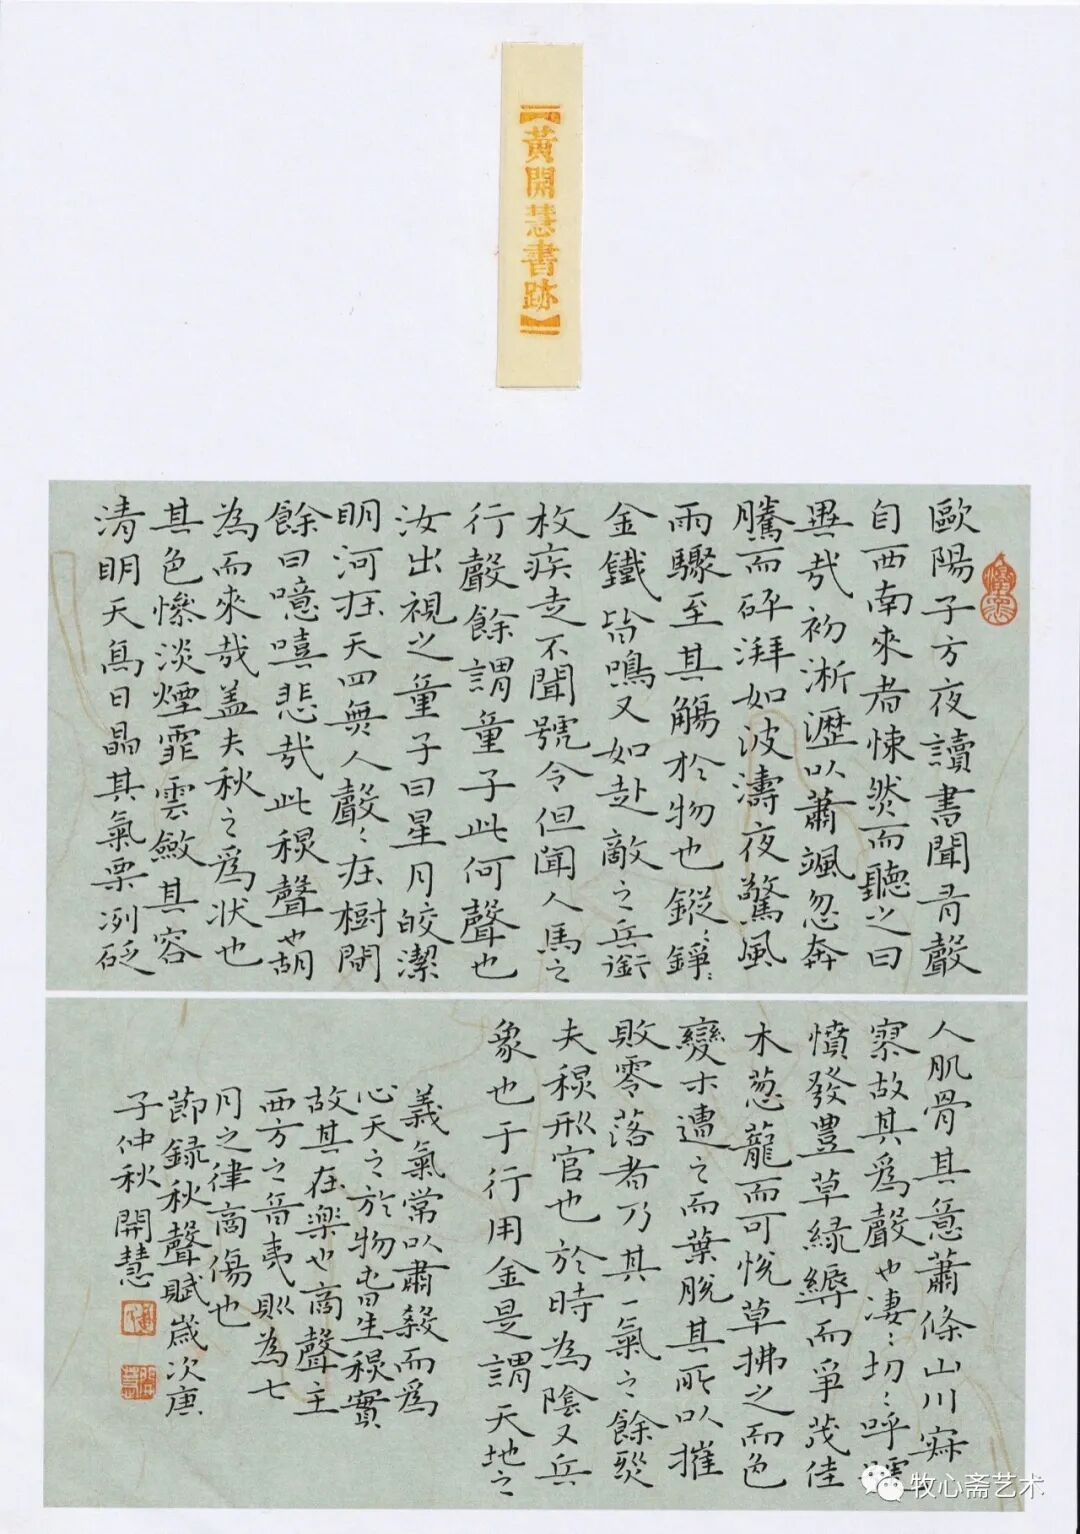 【黃開慧書跡】
歐陽子方夜讀書聞有聲
自西南來者悚然而聽之曰
異哉初淅瀝以蕭颯忽奔
騰而砰湃如波濤夜驚風
雨驟至其觸於物也鏦〻錚〻
金鐵皆鳴又如赴敵之兵銜
枚疾走不聞號令但聞人馬之
行聲餘謂童子此何聲也
汝出視之童子曰星月皎潔
明河在天四無人聲〻在樹間
餘曰噫嘻悲哉此穐聲也胡
為而來哉盖夫秋之爲狀也
其色慘淡煙霏雲斂其容
清明天高日晶其氣栗冽砭
人肌骨其意蕭條山川寂
寥故其爲聲也凄〻切〻呼號
憤發豊草緑縟而爭茂佳
木葱蘢而可悅草拂之而色
變木遭之而葉脫其所以摧
敗零落者乃其一氣之餘烈
夫穐刑官也於時為陰又兵
象也于行用金是謂天地之
義氣常以肅殺而爲
心天之於物春生穐實
故其在樂也商聲主
西方之音夷則為七
月之律商傷也
節録秋聲賦歲次庚
子仲秋開慧
開慧
牧心斋艺术